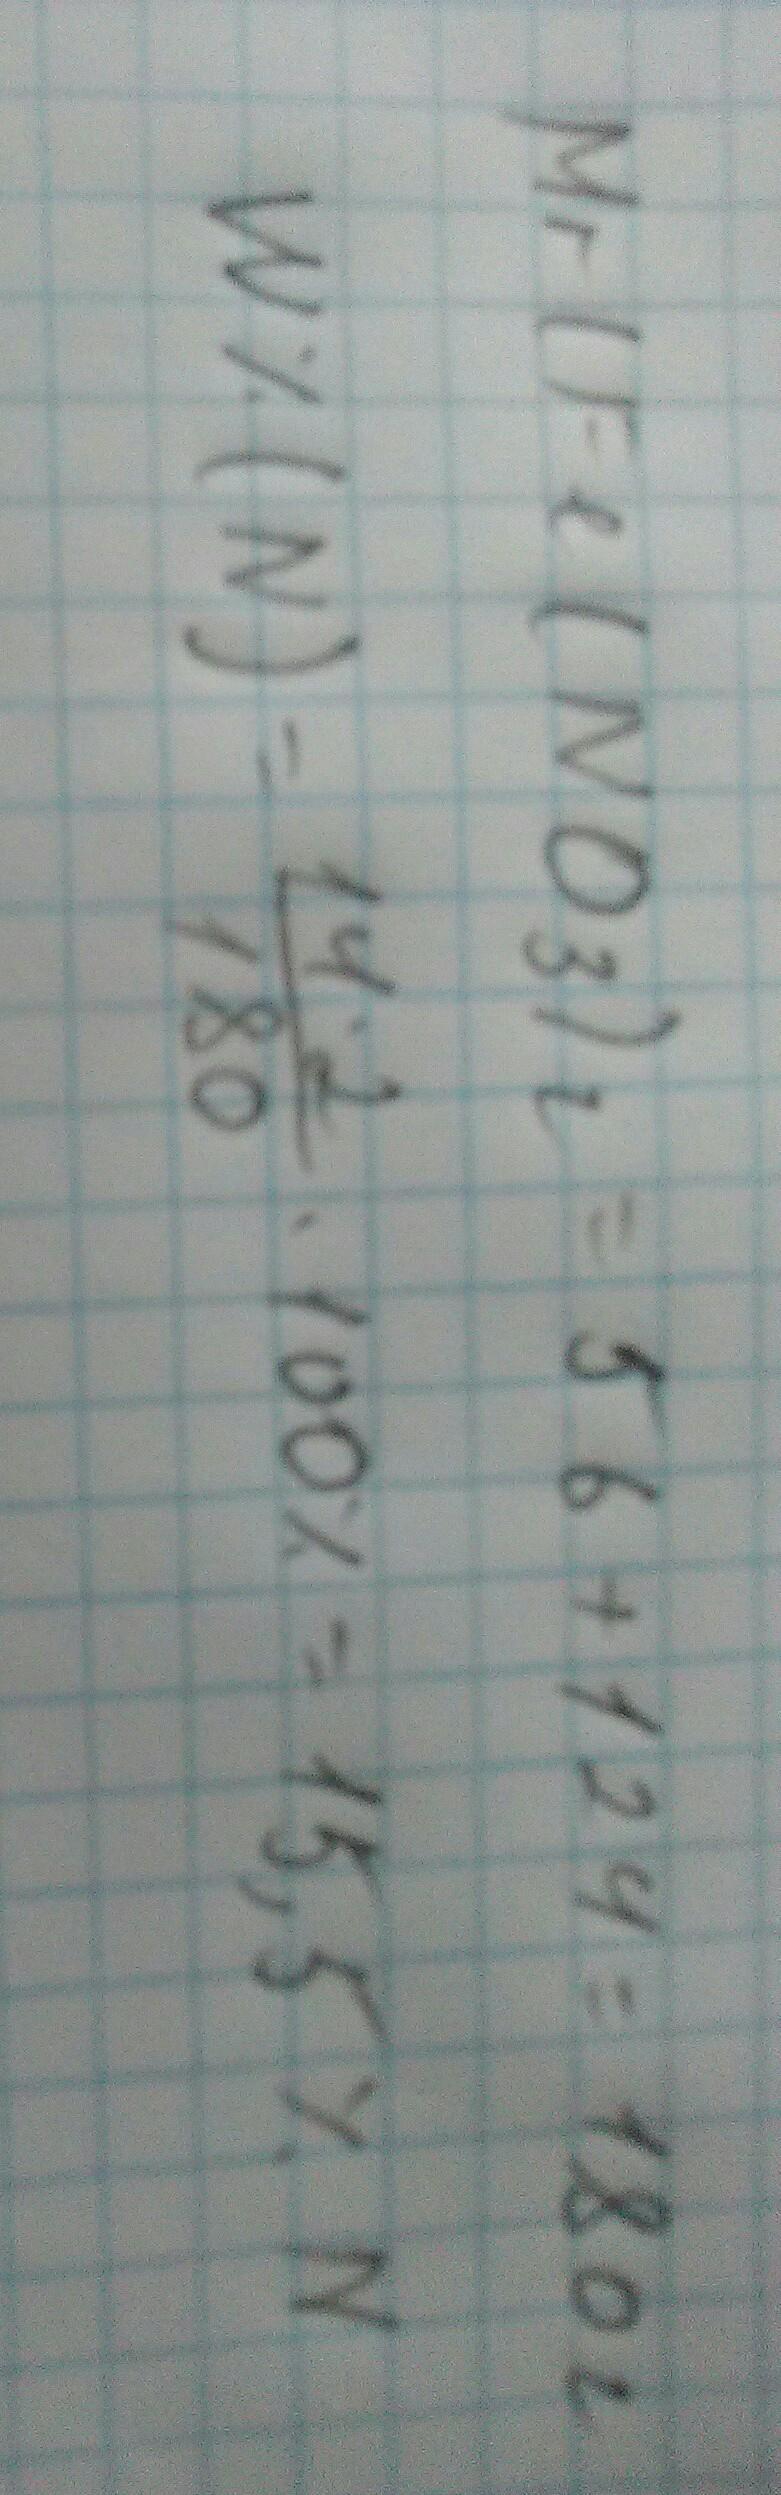 Mr(Fe(NO3)2 = 56+124= 180 г
W%(N) = 14·2/180 · 100% = 15,5% N